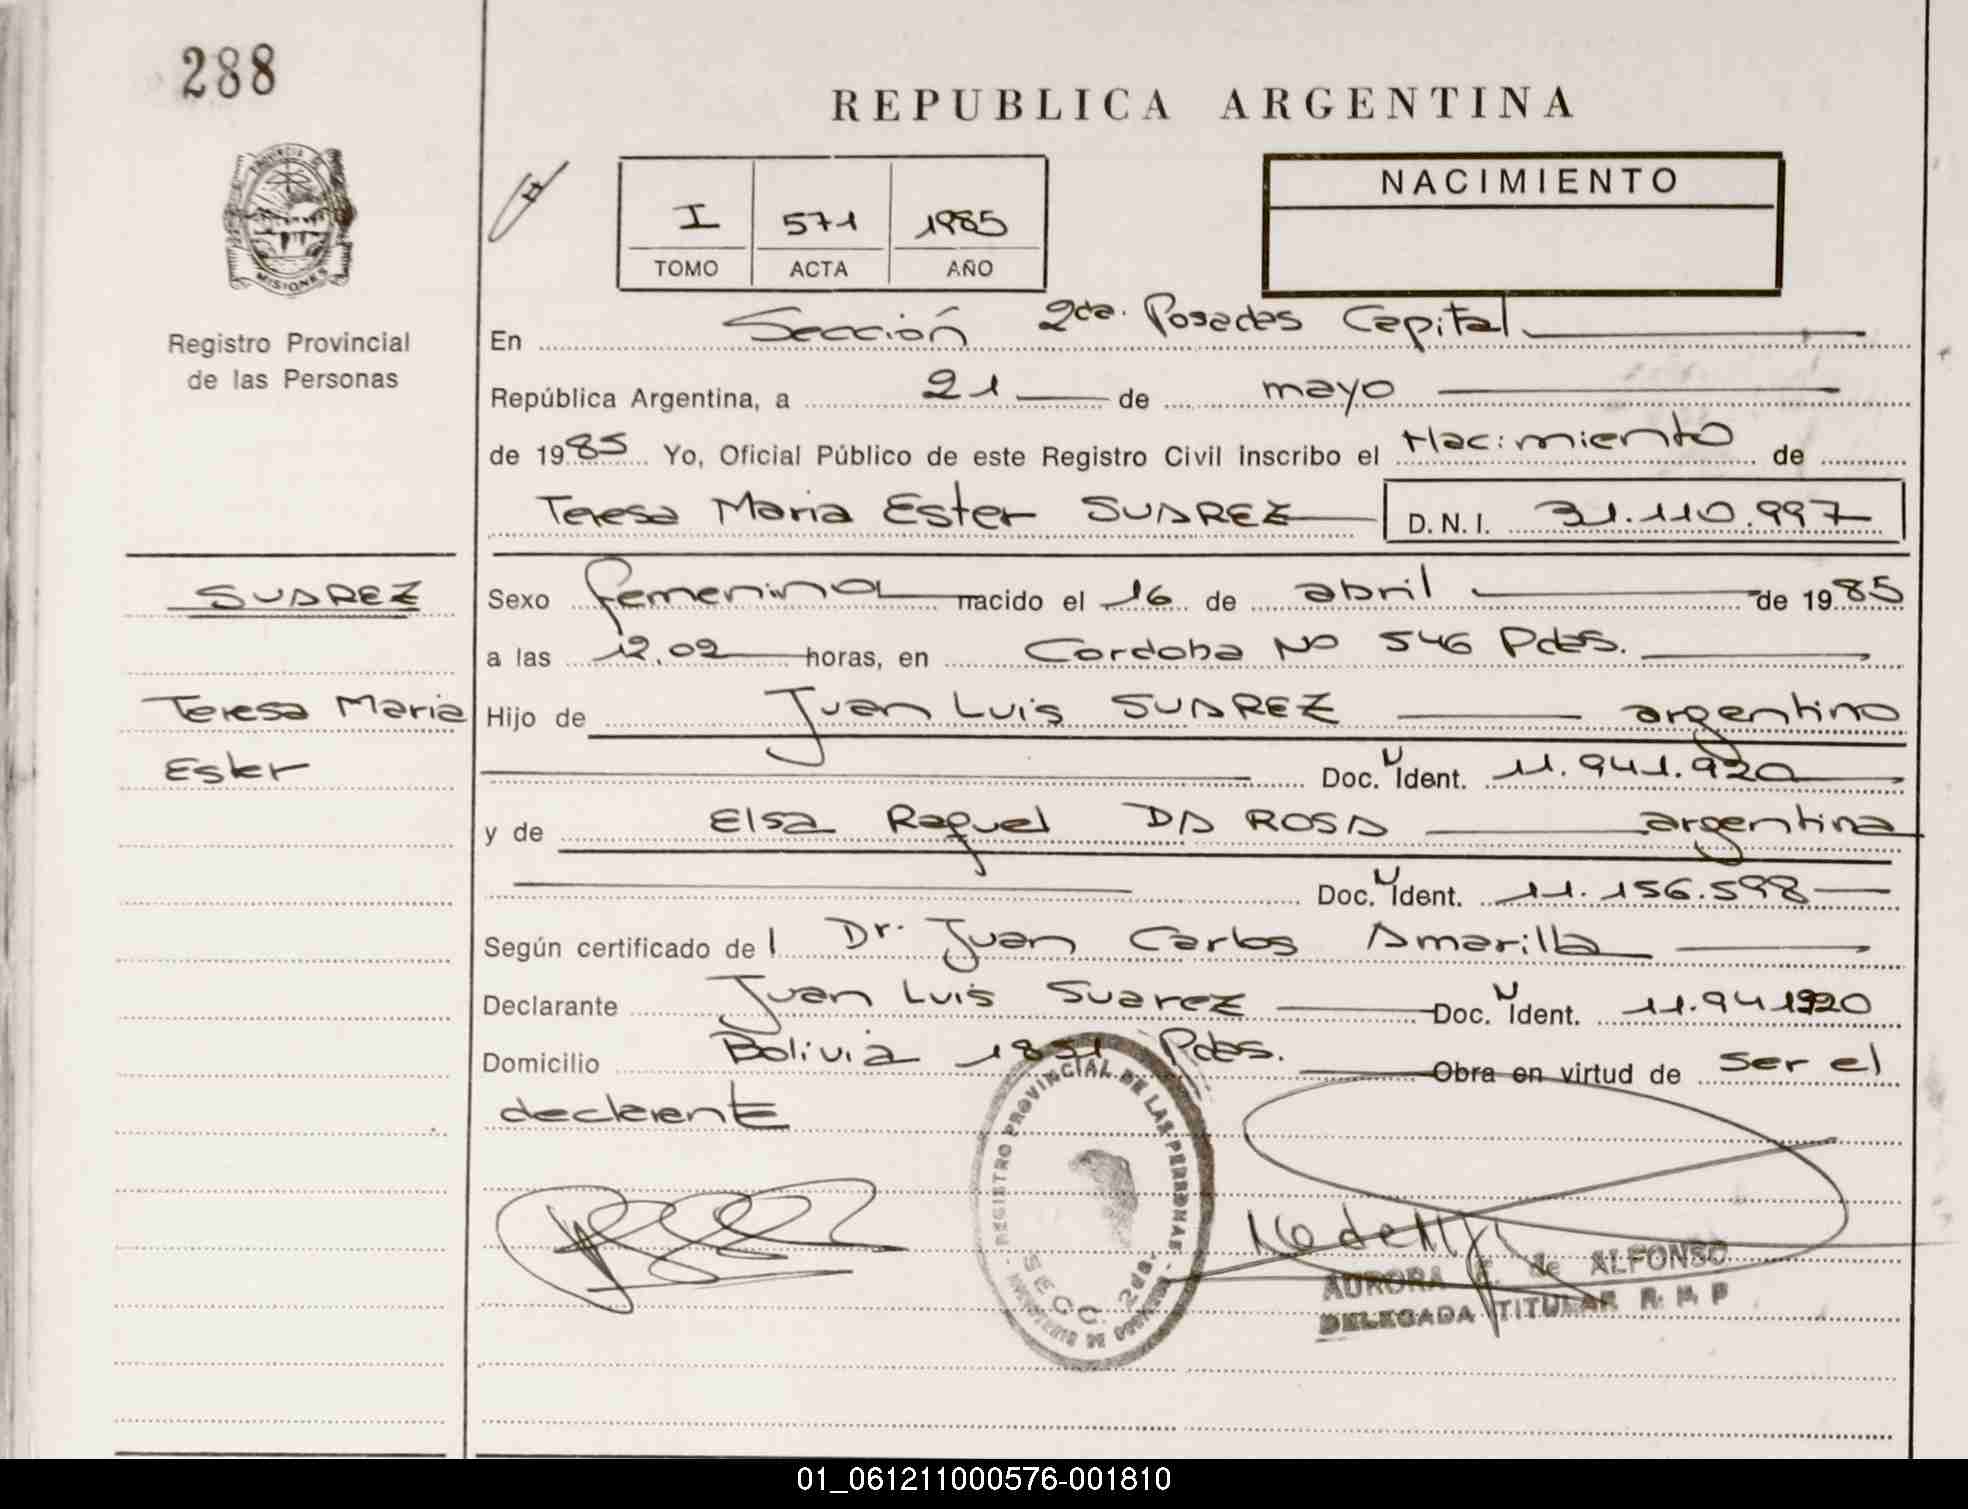 288
REPUBLICA ARGENTINA
PROVINCIA DE MISIONES
Registro Provincial
de las Personas
I 571 1985
TOMO ACTA AÑO
NACIMIENTO
En Sección 2da. Posadas Capital
República Argentina, a 21 de mayo
de 1985 Yo, Oficial Público de este Registro Civil inscribo el Nacimiento de
Teresa Maria Ester SUAREZ D.N.I. 31.110.997
SUAREZ
Teresa Maria
Ester
Sexo femenino nacido el 16 de abril de 1985
a las 12.02 horas, en Cordoba No 546 Pdas.
Hijo de Juan Luis SUAREZ argentino
Doc. N Ident. 11.941.920
y de Elsa Raquel DA ROSA argentina
Doc. N Ident. 11.156.598
Según certificado del Dr. Juan Carlos Amarilla
Declarante Juan Luis Suarez Doc. N Ident. 11.941920
Domicilio Bolivia 1851 Pdas. Obra en virtud de ser el
declarente
REGISTRO PROVINCIAL DE LAS PERSONAS
SECC. 2da.
MINISTERIO DE GOBIERNO
AURORA de ALFONSO
DELEGADA TITULAR R. N. P
01_061211000576-001810